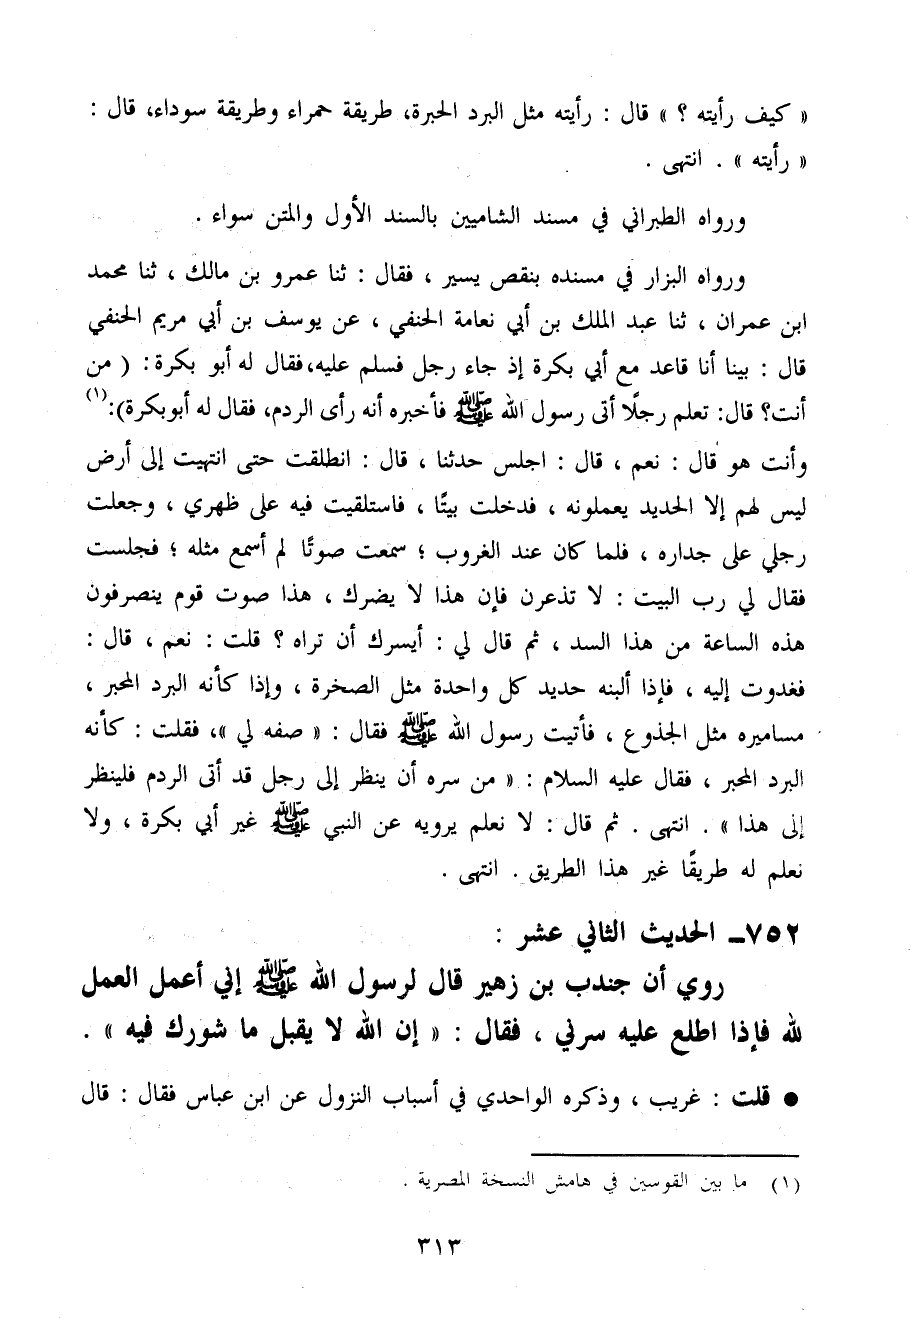 « كيف رأيته ؟ » قال : رأيته مثل البرد الحبرة، طريقة حمراء وطريقة سوداء، قال :
« رأيته » . انتهى .
ورواه الطبراني في مسند الشاميين بالسند الأول والمتن سواء .
ورواه البزار في مسنده بنقص يسير ، فقال : ثنا عمرو بن مالك ، ثنا محمد
ابن عمران ، ثنا عبد الملك بن أبي نعامة الحنفي ، عن يوسف بن أبي مريم الحنفي
قال : بينا أنا قاعد مع أبي بكرة إذ جاء رجل فسلم عليه،فقال له أبو بكرة: ( من
أنت؟ قال: تعلم رجلًا أتى رسول الله ﷺ فأخبره أنه رأى الردم، فقال له أبوبكرة):(١)
وأنت هو قال : نعم ، قال : اجلس حدثنا ، قال : انطلقت حتى انتهيت إلى أرض
ليس لهم إلا الحديد يعملونه ، فدخلت بيتًا ، فاستلقيت فيه على ظهري ، وجعلت
رجلي على جداره ، فلما كان عند الغروب ؛ سمعت صوتًا لم أسمع مثله ؛ فجلست
فقال لي رب البيت : لا تذعرن فإن هذا لا يضرك ، هذا صوت قوم ينصرفون
هذه الساعة من هذا السد ، ثم قال لي : أيسرك أن تراه ؟ قلت : نعم ، قال :
فغدوت إليه ، فإذا ألبنه حديد كل واحدة مثل الصخرة ، وإذا كأنه البرد المحبر ،
مساميره مثل الجذوع ، فأتيت رسول الله ﷺ فقال : « صفه لي »، فقلت : كأنه
البرد المحبر ، فقال عليه السلام : « من سره أن ينظر إلى رجل قد أتى الردم فلينظر
إلى هذا » . انتهى . ثم قال : لا نعلم يرويه عن النبي ﷺ غير أبي بكرة ، ولا
نعلم له طريقًا غير هذا الطريق . انتهى .
٧٥٢ـ الحديث الثاني عشر :
روي أن جندب بن زهير قال لرسول الله ﷺ إني أعمل العمل
لله فإذا اطلع عليه سرني ، فقال : « إن الله لا يقبل ما شورك فيه » .
● قلت : غريب ، وذكره الواحدي في أسباب النزول عن ابن عباس فقال : قال
(١) ما بين القوسين في هامش النسخة المصرية .
٣١٣